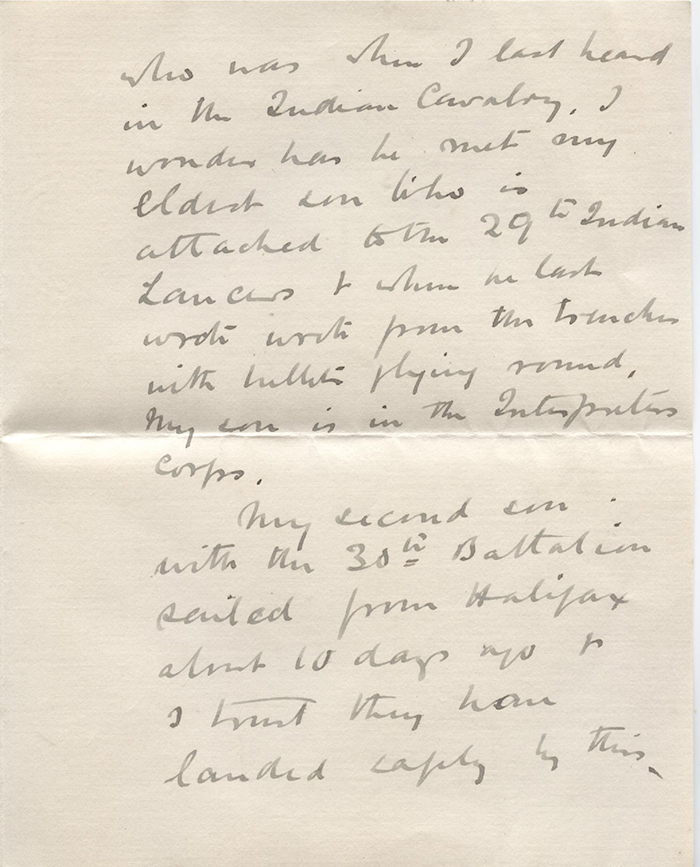 who was when I last heard
in the Indian Cavalry. I
wonder has he met my
eldest son who is
attached to the 29th Indian
Lancers & when he last
wrote wrote from the trenches
with bullets flying round.
My son is in the Interpreters
Corps.
My second son
with the 30th Battalion
sailed from Halifax
about 10 days ago &
I trust they have
landed safely by this.